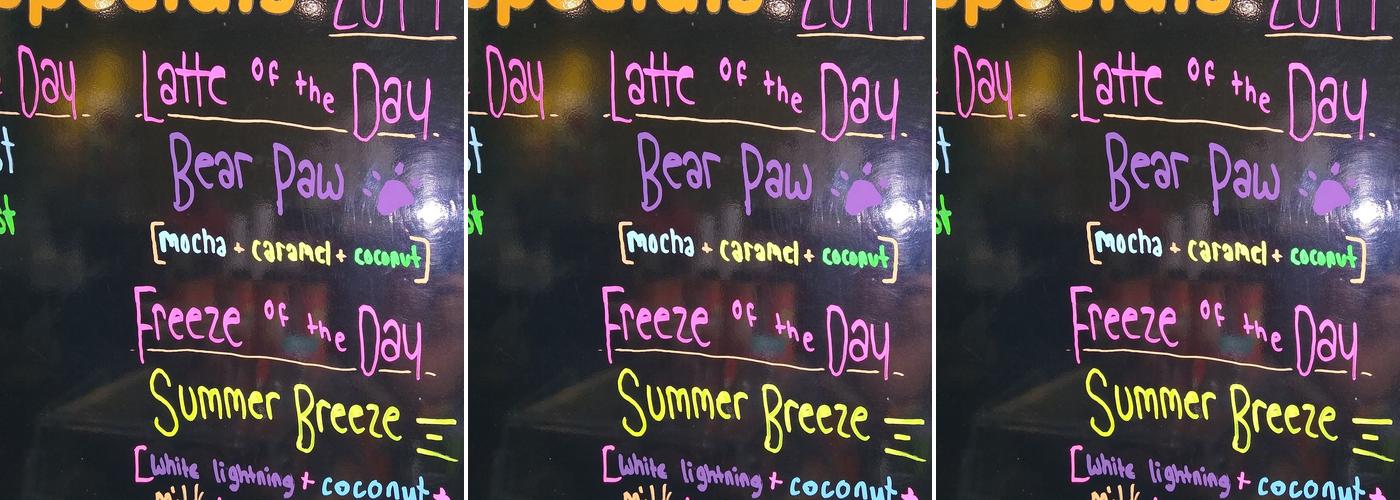 Specials
Day
Latte of the Day
Bear Paw
[mocha + caramel + coconut]
Freeze of the Day
Summer Breeze
[White lightning + coconut +
Specials
Day
Latte of the Day
Bear Paw
[mocha + caramel + coconut]
Freeze of the Day
Summer Breeze
[White lightning + coconut +
Specials
Day
Latte of the Day
Bear Paw
[mocha + caramel + coconut]
Freeze of the Day
Summer Breeze
[White lightning + coconut +